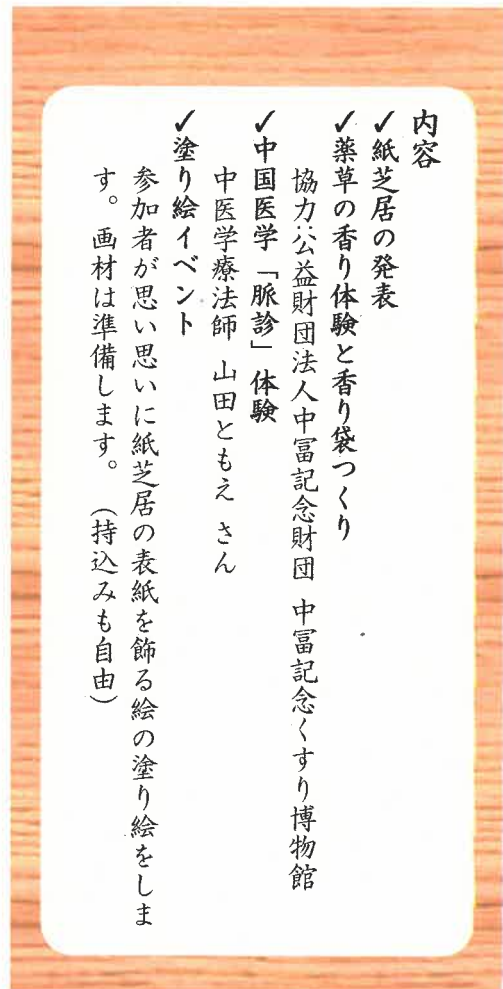 内容
✓紙芝居の発表
✓薬草の香り体験と香り袋つくり
協力:公益財団法人中冨記念財団 中冨記念くすり博物館
✓中国医学「脈診」体験
中医学療法師 山田ともえ さん
✓塗り絵イベント
参加者が思い思いに紙芝居の表紙を飾る絵の塗り絵をしま
す。画材は準備します。 (持込みも自由)